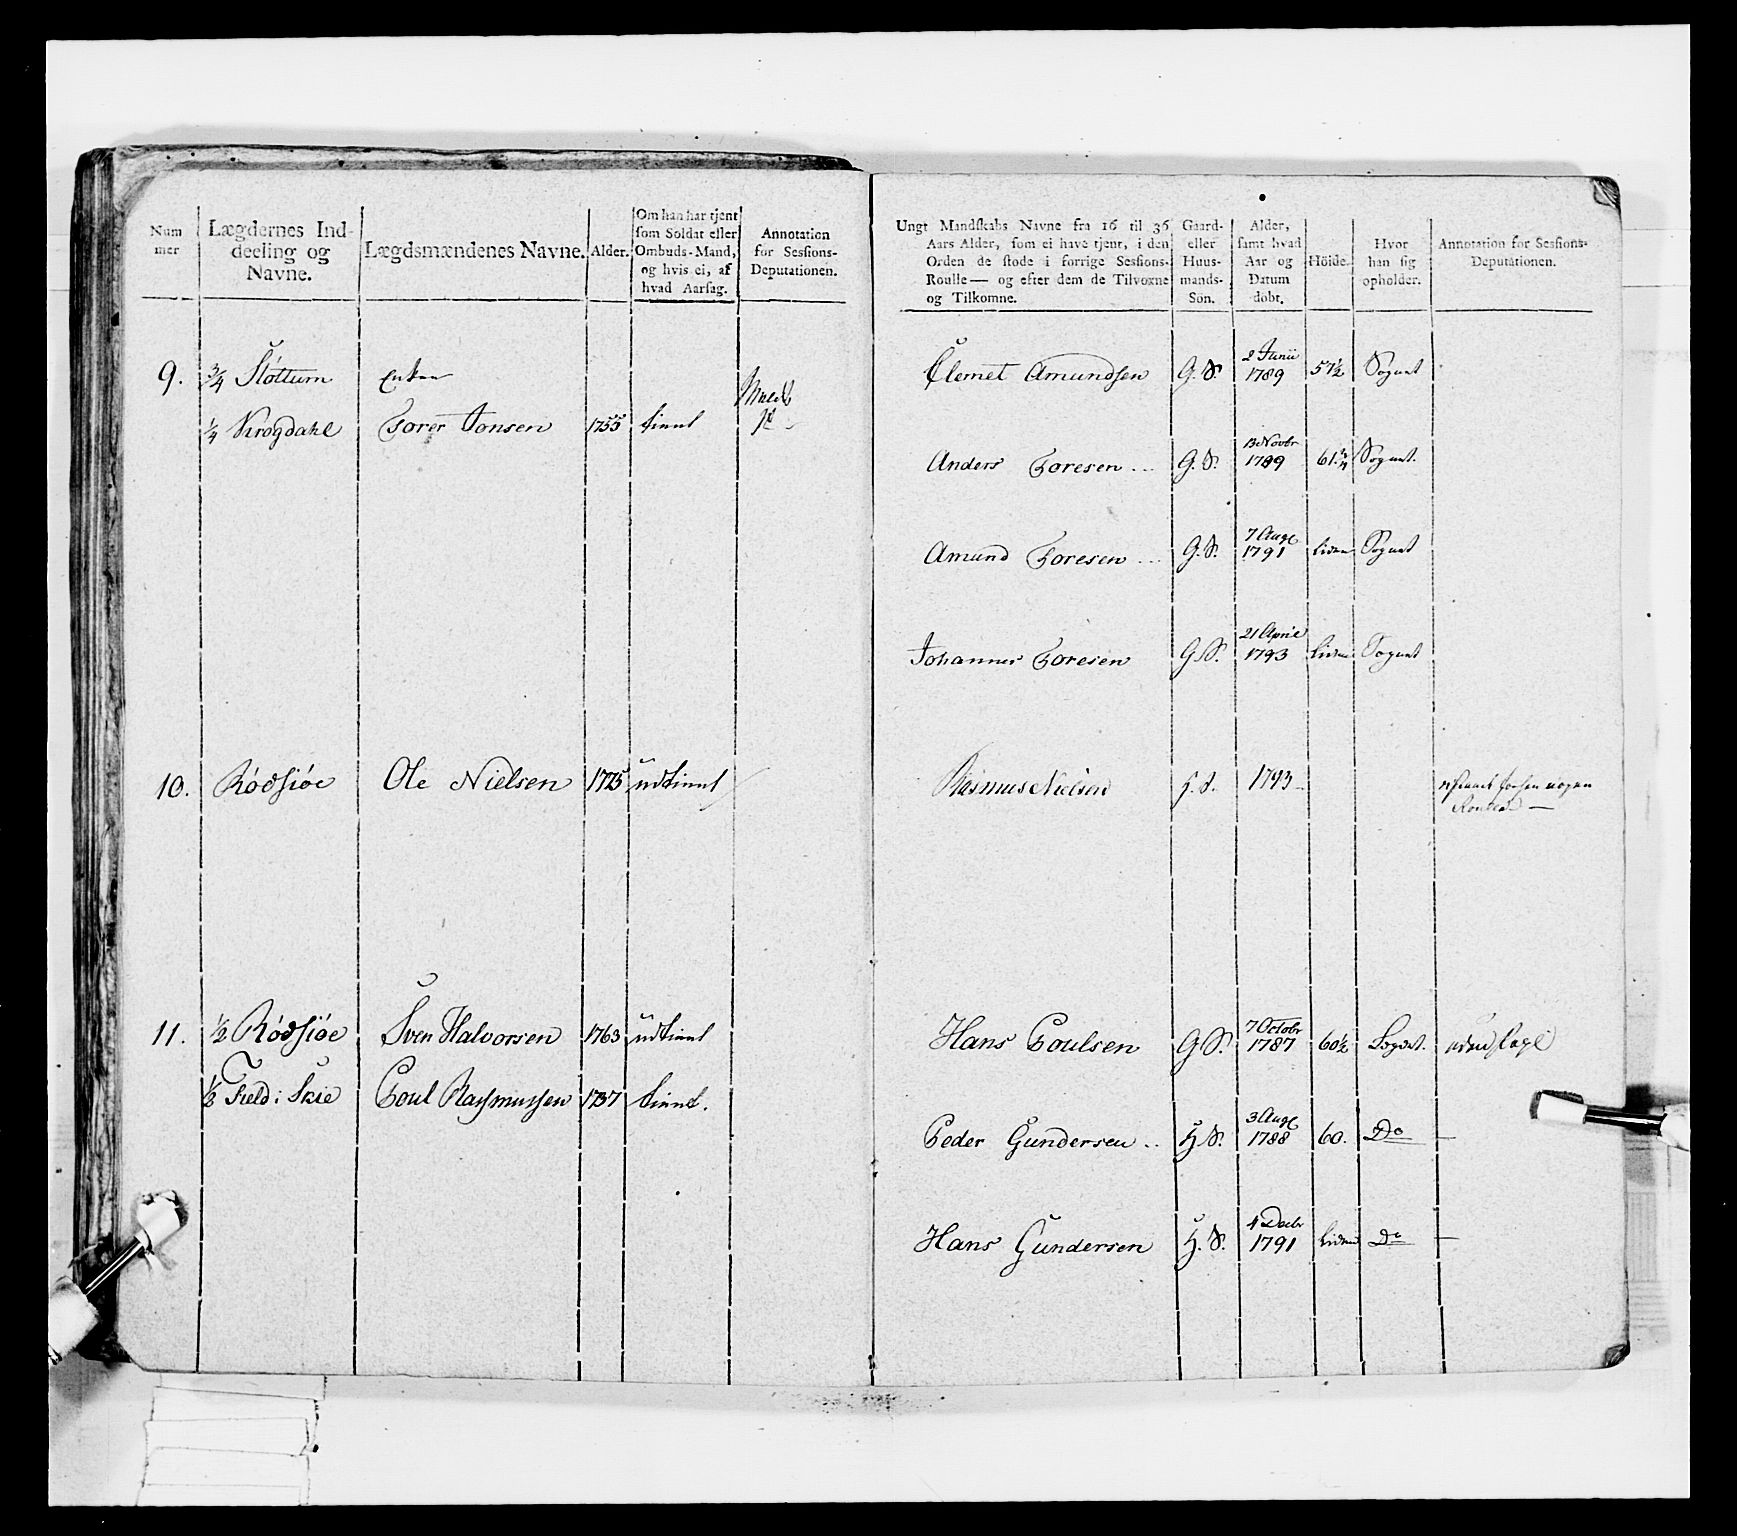 Num
mer
Lægdernes Ind-
deeling og
Navne.
Lægdsmændenes Navne.
Alder.
Om han har tjent
som Soldat eller
Ombuds-Mand,
og hvis ei, af
hvad Aarsag.
Annotation
for Sessions-
Deputationen.
9. ¾ Støttum Enken
¼ Krogdahl Torer Jonsen 1755 tient
10. Rødsiøe Ole Nielsen 1775 udtient
11. ½ Rødsiøe Sven Halvorsen 1763 udtient
½ Field i Skie Poul Rasmussen 1737 tient.
Ungt Mandskabs Navne fra 16 til 36
Aars Alder, som ei have tjent, i den
Orden de stode i forrige Sessions-
Roulle — og efter dem de Tilvoxne
og Tilkomne.
Gaard-
eller
Huus-
mands-
Sön.
Alder,
samt hvad
Aar og
Datum
döbt.
Höide.
Hvor
han sig
opholder.
Annotation for Sessions-
Deputationen.
Clemet Amundsen G. S. 2 Junii 1789 57½ Sognet
Anders Toresen G. S. 13 Novbr 1789 61 ¾ Sognet.
Amund Toresen G. S. 7 Aug 1791 liden Sognet
Johannes Toresen G. S. 21 April 1793 liden Sognet
Rasmus Nielsen 1793
Hans Poulsen G. S. 7 Octobr 1787 60½ Sognet.
Peder Gundersen H. S. 3 Aug 1788 60. Do —
Hans Gundersen H. S. 4 Decbr 1791 liden Do —